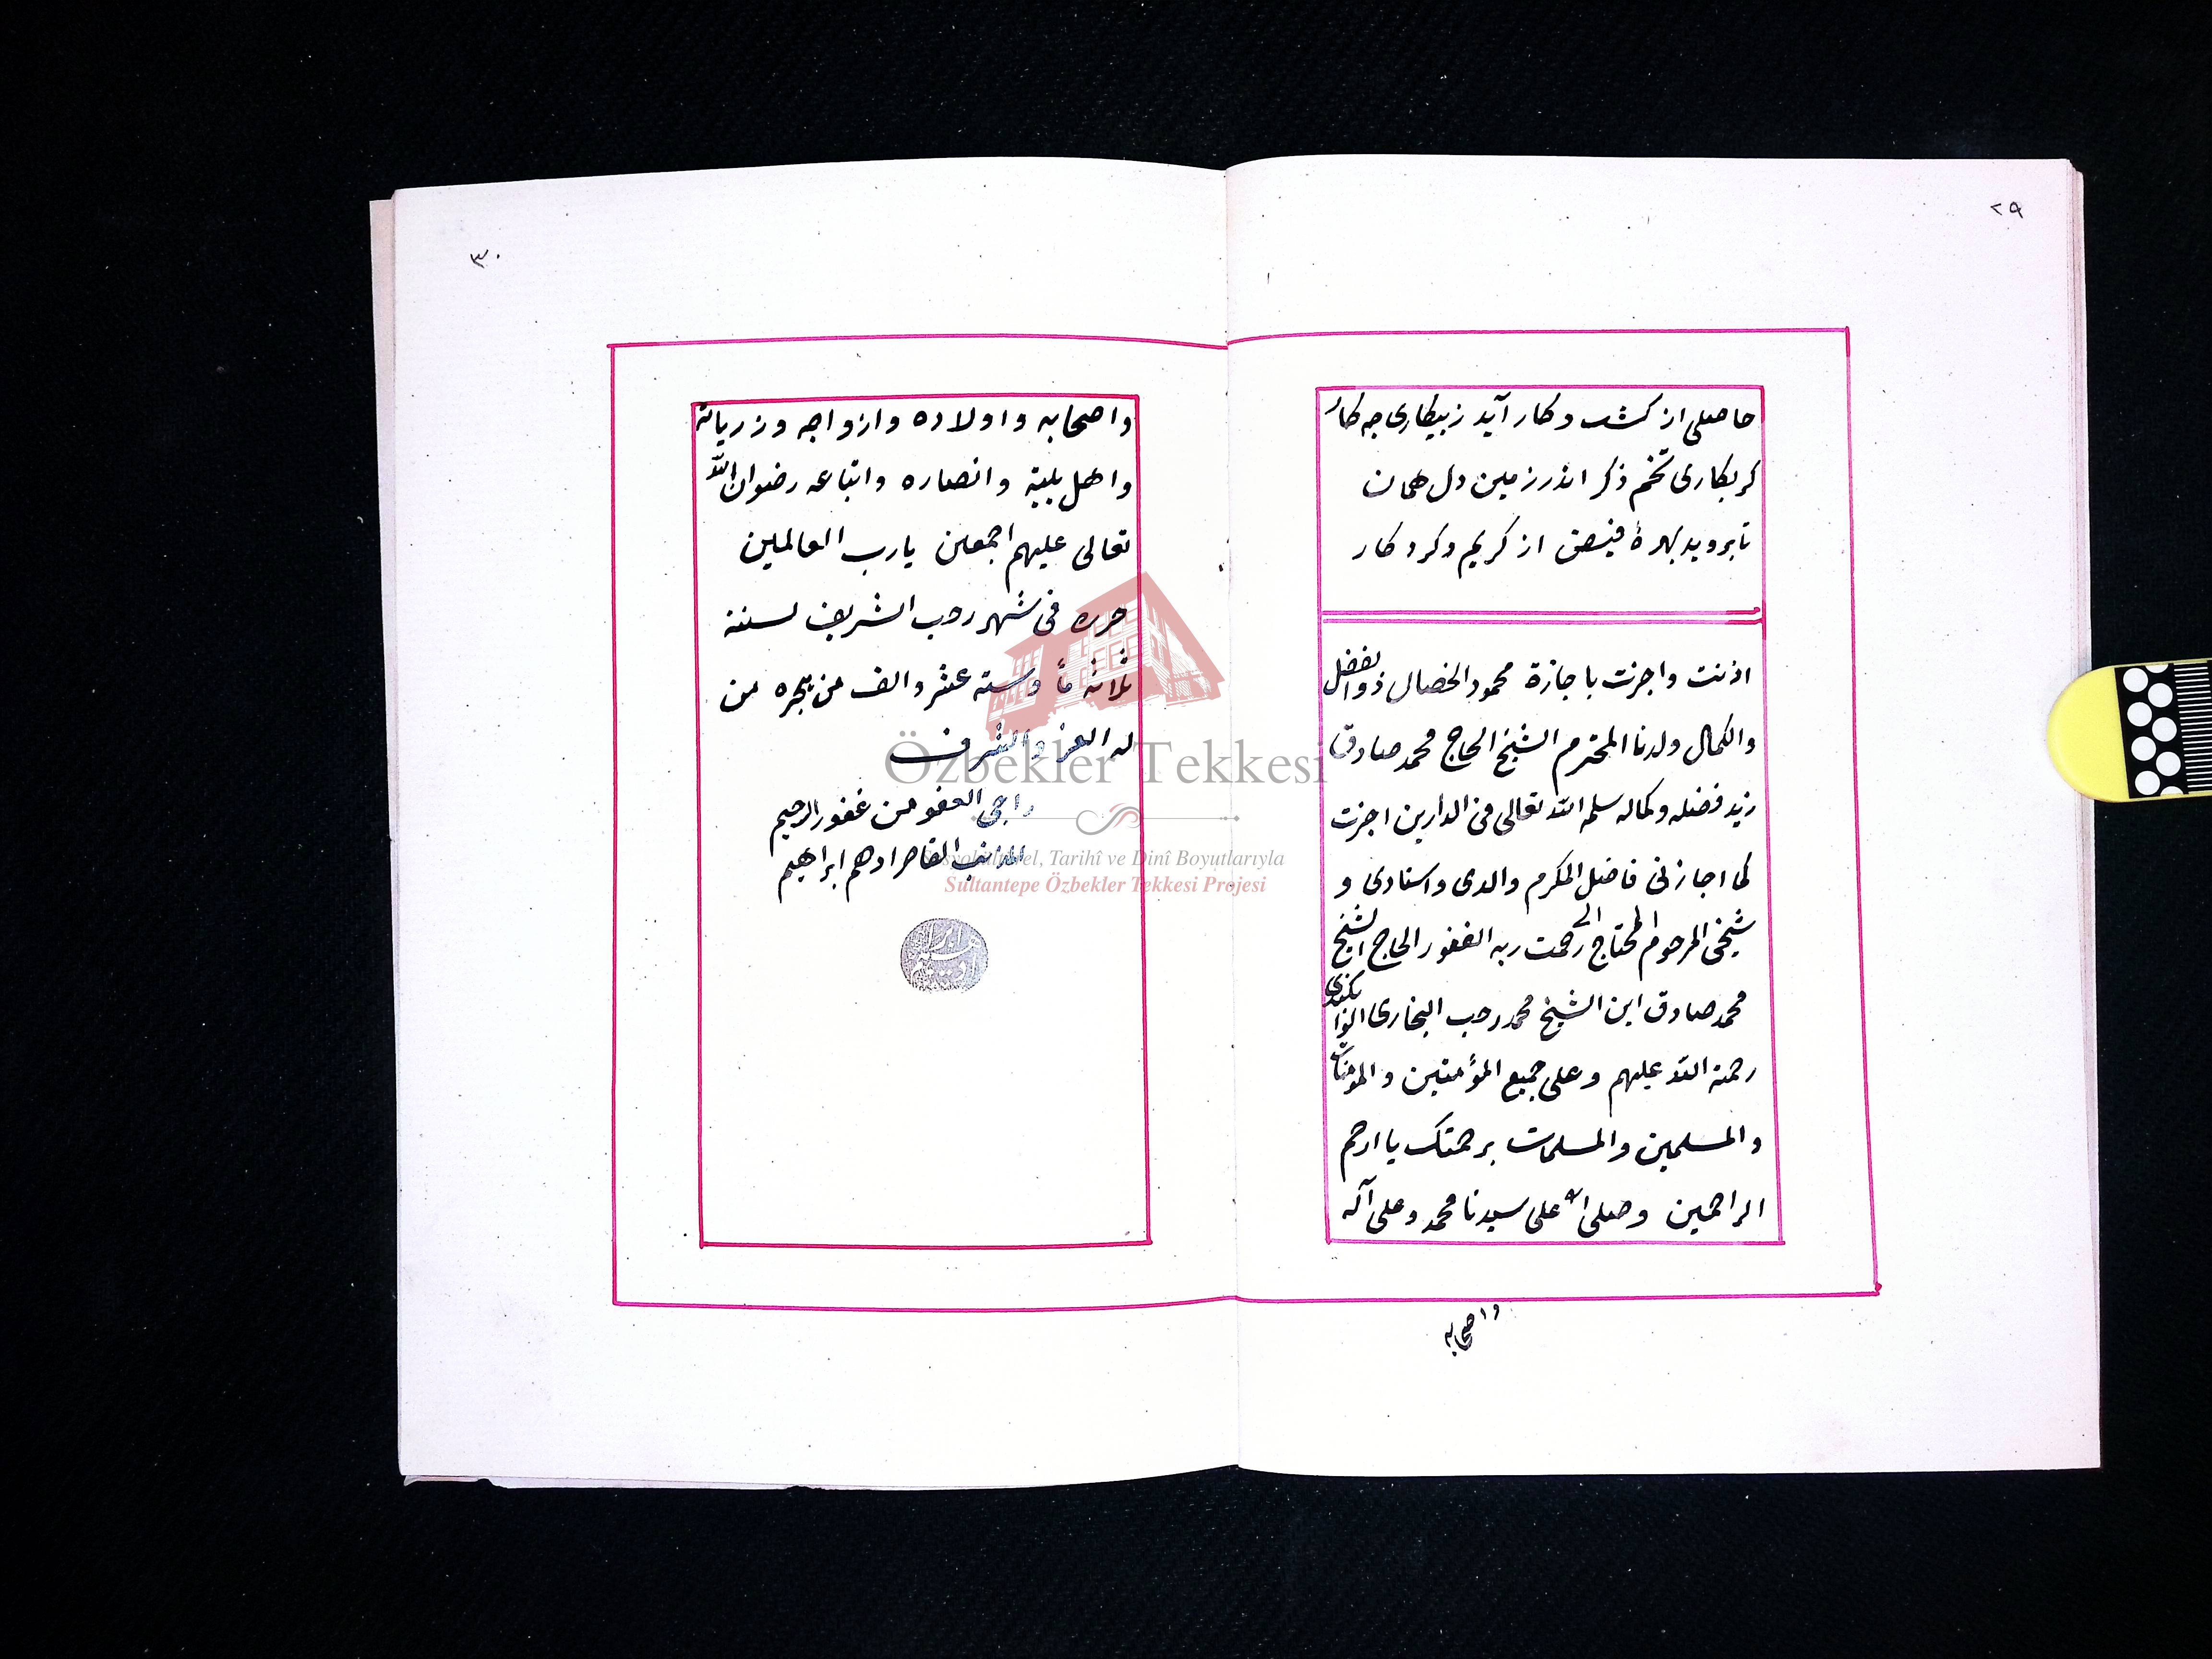 ٢٩
حاصلی از کشت و کار آید ز بیکاری جه کار
کر بکاری تخم ذکر اندر زمین دل همان
تا بروید بهرهٔ فیض از کریم و کردکار
اذنت واجزت باجازة محمود الخصال ذو الفضل
والکمال ولدنا المحترم الشیخ الحاج محمد صادق
زید فضله وکماله سلمه الله تعالی فی الدارین اجزت
کما اجازنی فاضل المکرم والدی واستادی و
شیخی المرحوم المحتاج الی رحمت ربه الغفور الحاج الشیخ
محمد صادق ابن الشیخ محمد رجب البخاری
رحمة الله علیهم وعلی جمیع المؤمنین والمؤمنات
والمسلمین والمسلمات برحمتک یا ارحم
الراحمین وصلی الله علی سیدنا محمد وعلی آله
واصحابه
٣٠
واصحابه واولاده وازواجه وزریاته
واهل بیته وانصاره واتباعه رضوان الله
تعالی علیهم اجمعین یارب العالمین
حرره فی شهر رجب الشریف لسنة
ثلاثه مأ وسته عشر والف من هجره من
له العز والشرف
راجی العفو من غفور الرحیم
المذنب القاصر ادهم ابراهیم
Özbekler Tekkesi
Sosyokültürel, Tarihî ve Dinî Boyutlarıyla
Sultantepe Özbekler Tekkesi Projesi